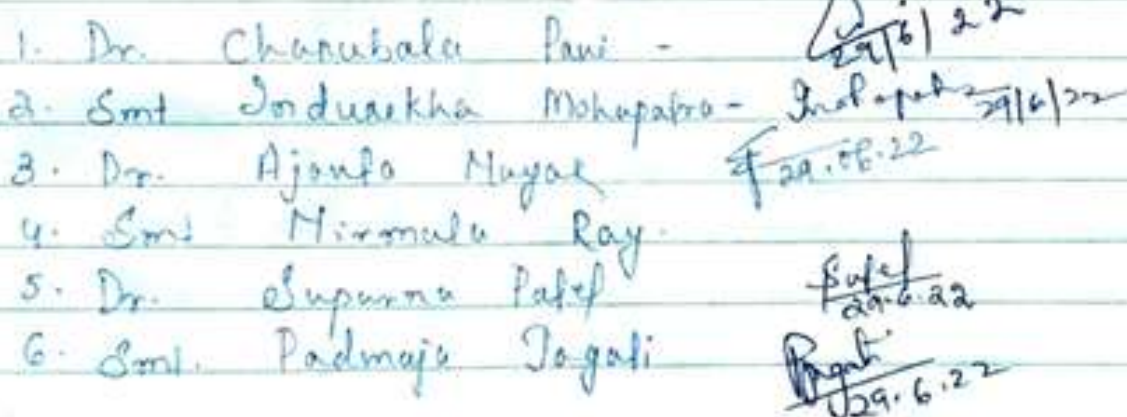 1. Dr. Charubala Pani - 29/6/22
2. Smt Indurekha Mohapatra - 29/6/22
3. Dr. Ajanta Nayak 29.06.22
4. Smt Nirmala Ray.
5. Dr. Suparna Patel 29.6.22
6. Smt. Padmaja Jagati 29.6.22